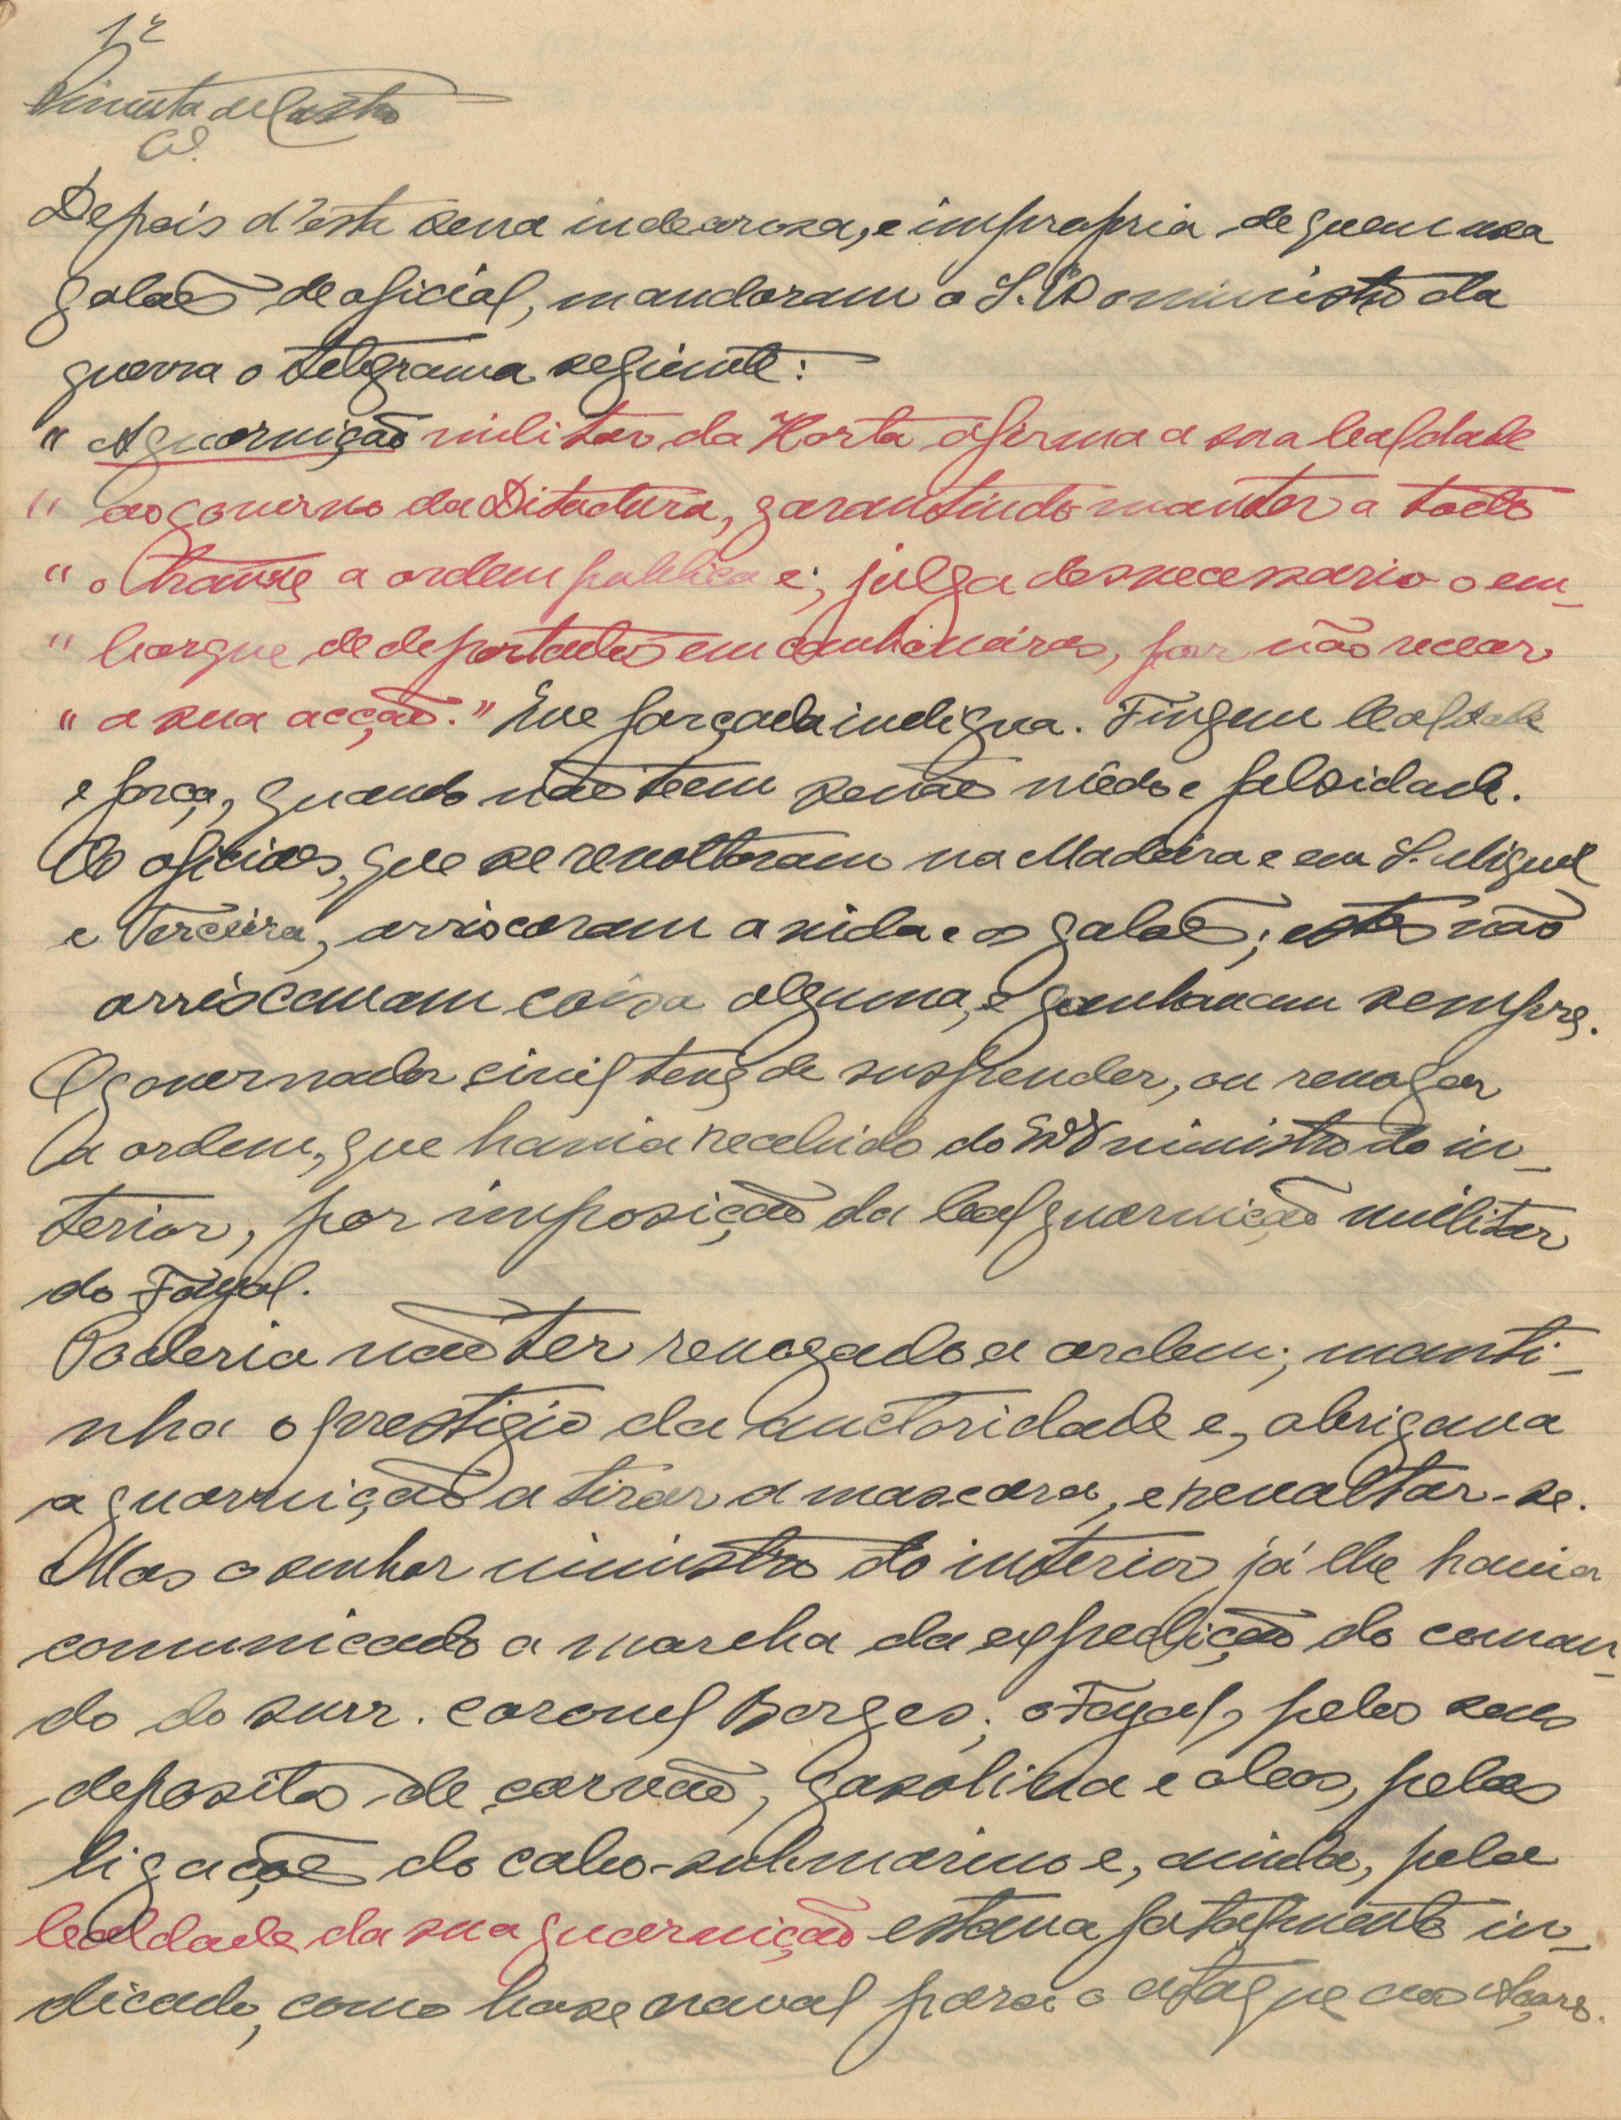 1º
Pimenta de Castro
Depois d'esta cena indecorosa, e impropria de quem usa
galões de oficial, mandaram o S. Exº ministro da
guerra o telegrama seginte:
" A guarnição militar da Horta afirma a sua lealdade
" ao governo da Ditadura, garantindo manter a todo
" o transe a ordem publica e; julga desnecessario o em-
" barque de deportados em canhoneiras, por não recear
" a sua acção." Que farçada indigna. Fingem lealdade
e força, quando não teem senão mêdo e falsidade.
Os oficiaes, que se revoltaram na Madeira e em S. Miguel
e Terceira, arriscaram a vida e os galões; estes não
arriscavam coisa alguma, e ganhavam sempre.
O governador civil teve de suspender, ou revogar
a ordem, que havia recebido do Exº ministro do in-
terior, por imposição da leal guarnição militar
do Fayal.
Poderia não ter revogado a ordem; manti-
nha o prestigio da auctoridade e, obrigava
a guarnição a tirar a mascara, e revoltar-se.
Mas o senhor ministro do interior já lhe havia
comunicado a marcha da expedição do coman-
do do snrr. coronel Borges; o Fayal, pelos seus
depositos de carvão, gasolina e oleos, pelas
ligações do cabo-submarino e, ainda, pela
lealdade da sua guarnição estava fatalmente in-
dicado, como base naval para o ataque aos Açores.